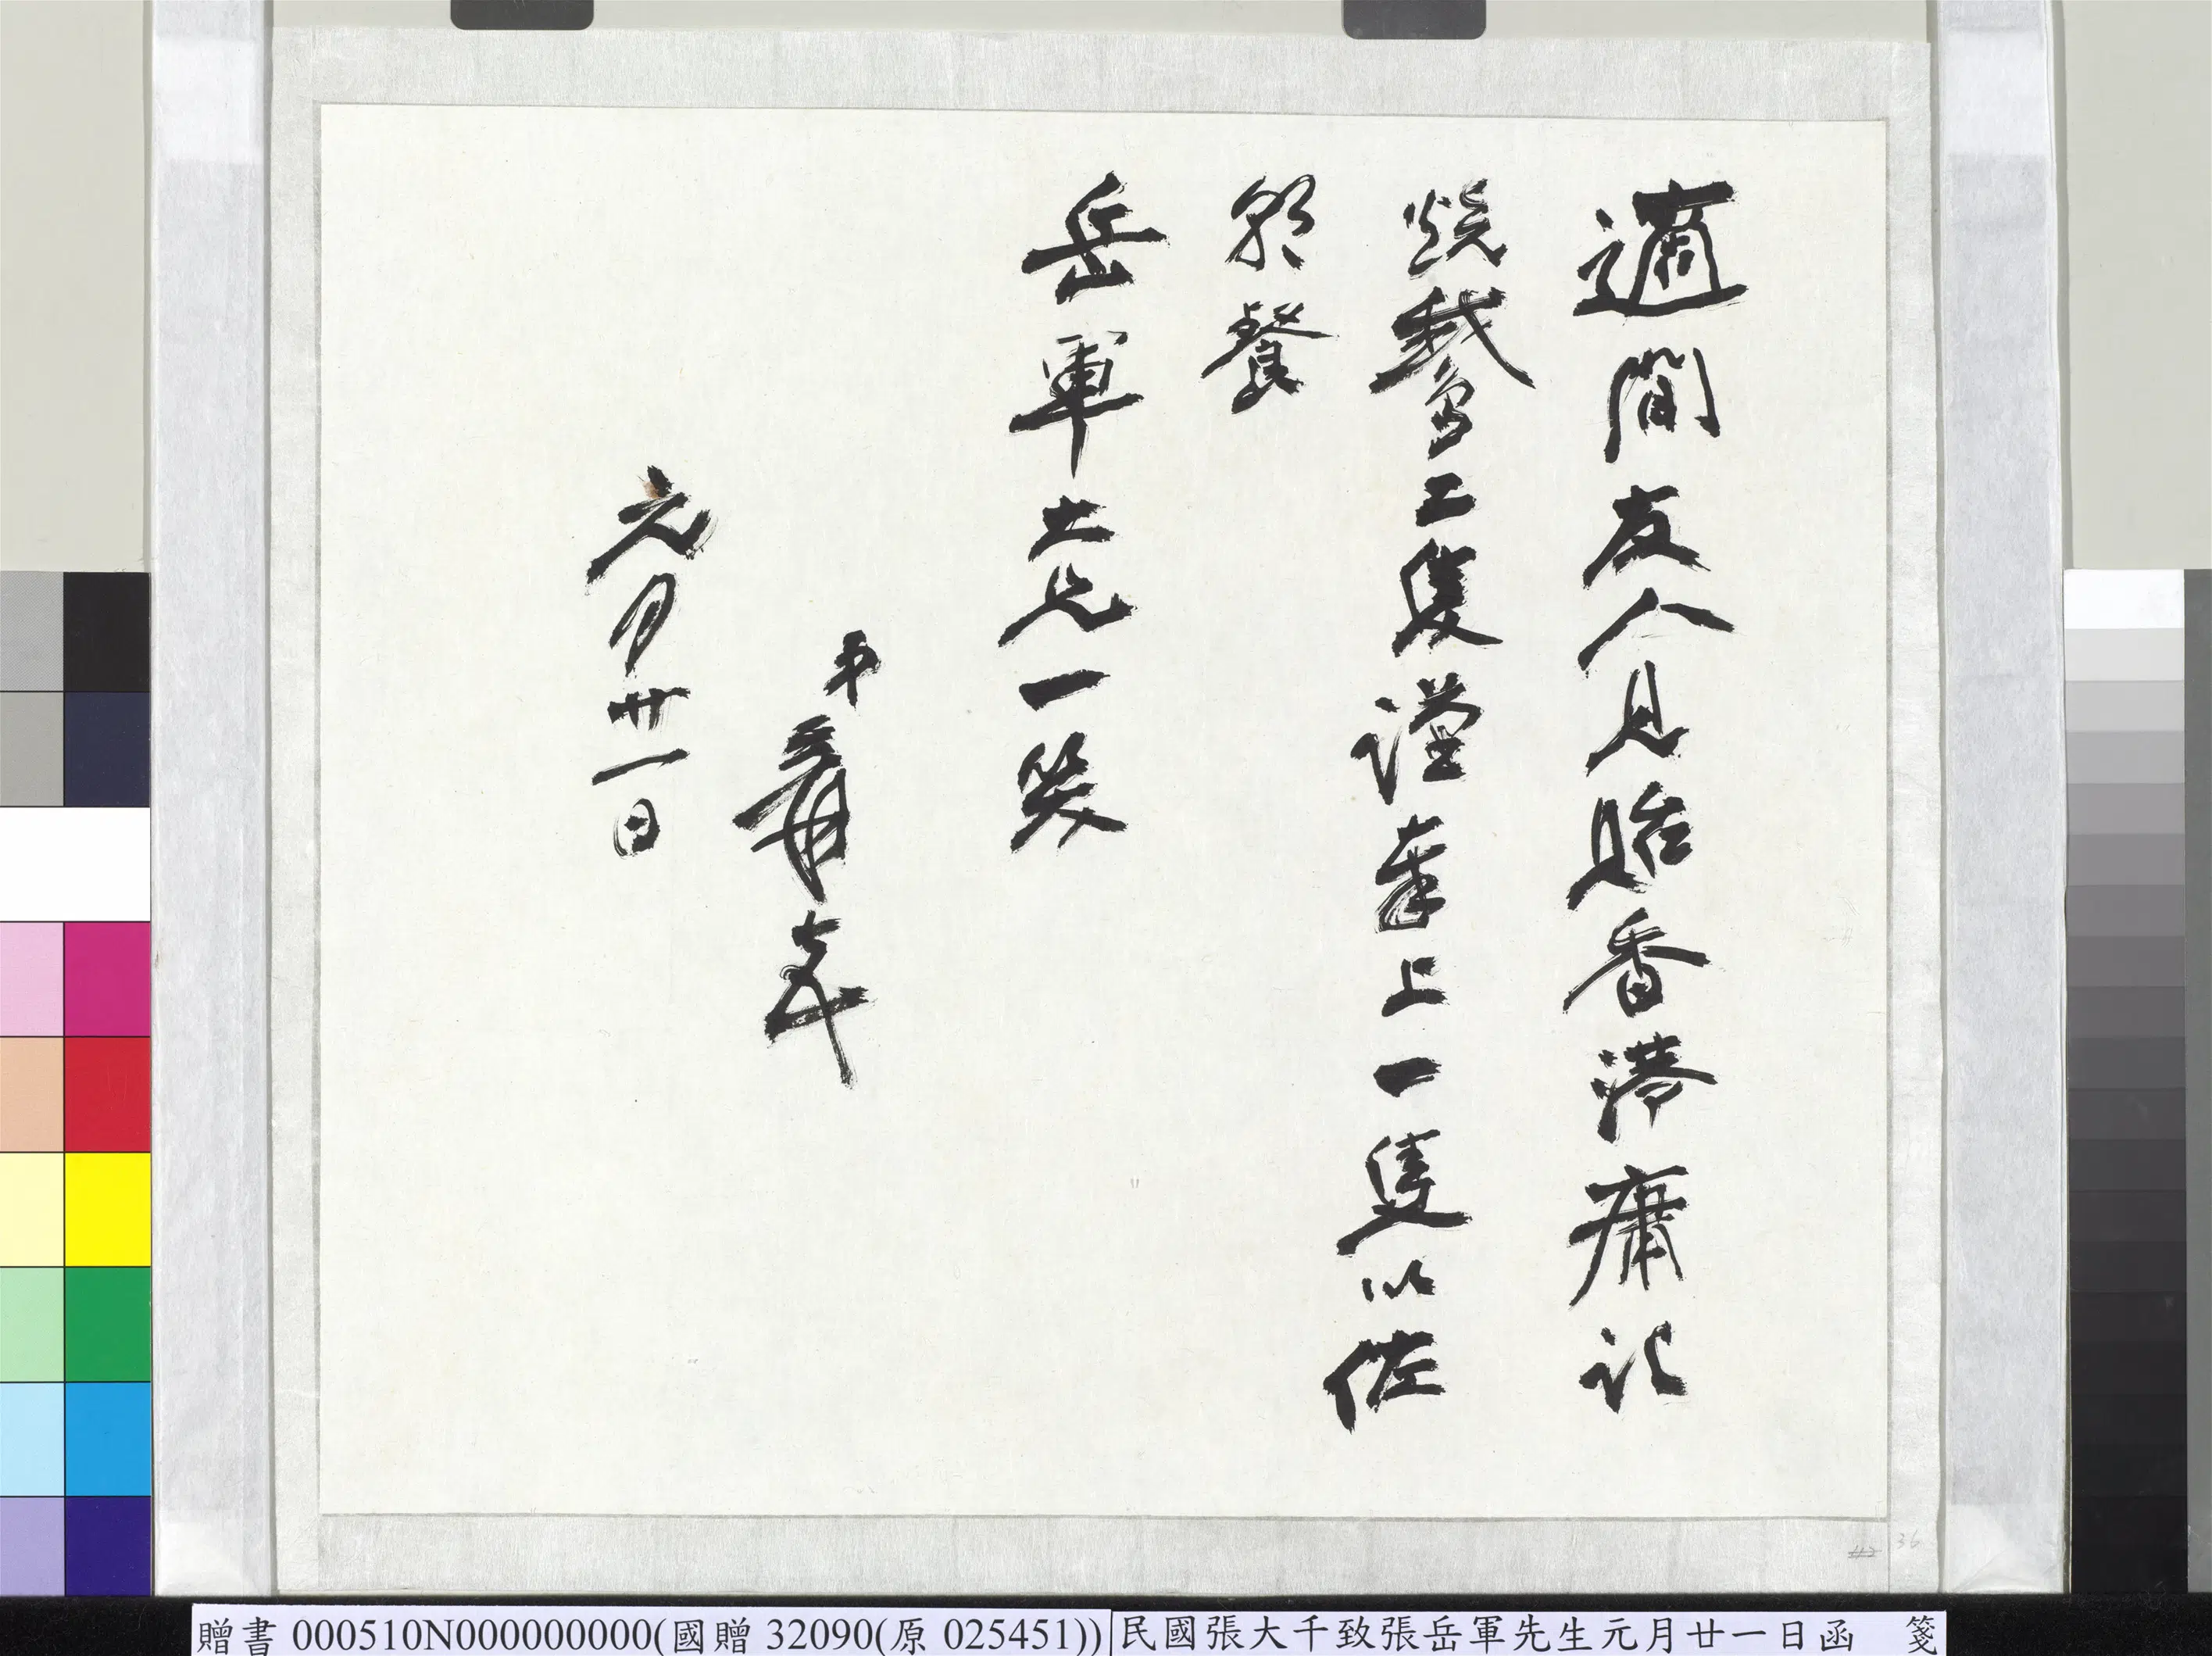 適間友人見貽香港庸記
燒鵞二隻謹奉上一隻以佐
朝餐
岳軍大兄一笑
弟爰頓首
元月廿一日
36
贈書 000510N000000000(國贈 32090(原 025451)) 民國張大千致張岳軍先生元月廿一日函 箋